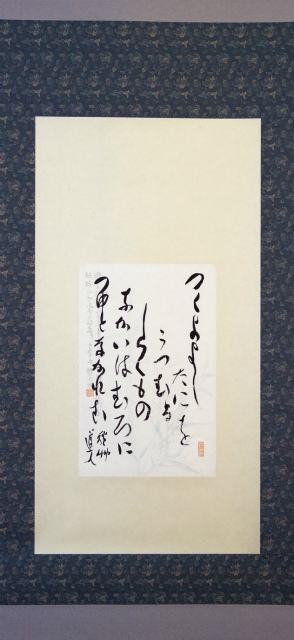 つくよよし
たにを
うつむる
しらくもの
わかいはむろに
つゆとなかれむ
秋艸
道人